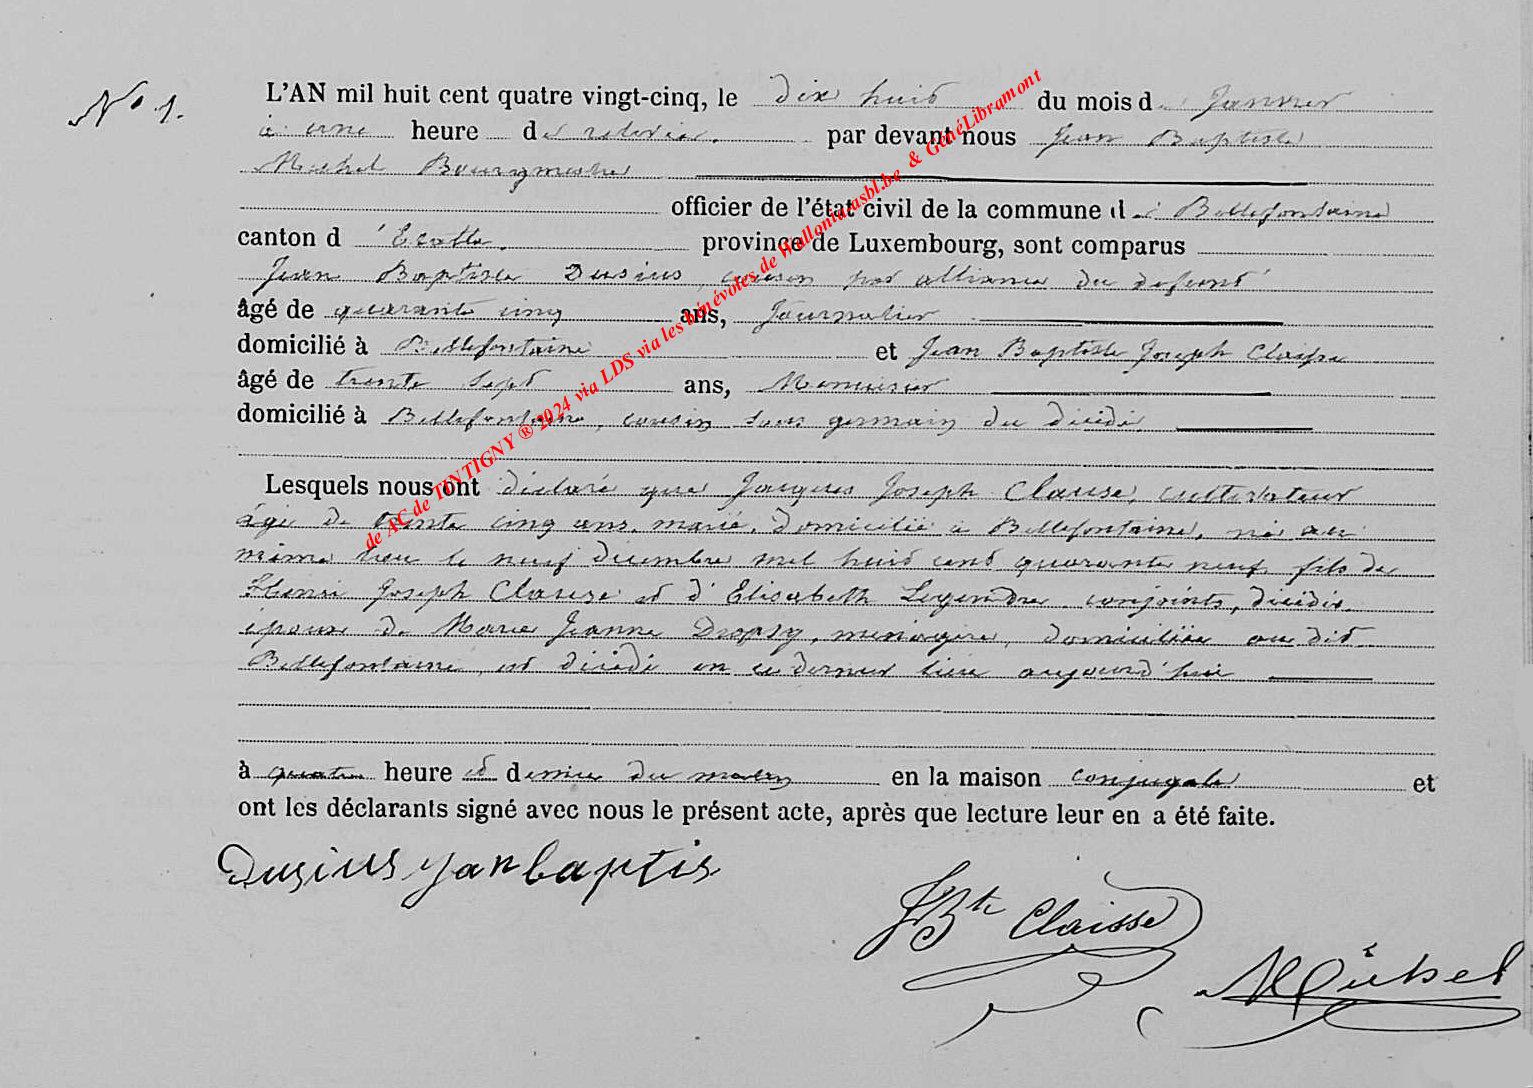 N° 1.
L'AN mil huit cent quatre vingt-cinq, le dix huit du mois d Janvier
à une heure de relevée. par devant nous Jean Baptiste
Michel Bourgmestre
officier de l'état civil de la commune d e Bellefontaine
canton d 'Etalle. province de Luxembourg, sont comparus
Jean Baptiste Dusius, cousin par alliance du defunt
âgé de quarante cinq ans, Journalier
domicilié à Bellefontaine et Jean Baptiste Joseph Claisse
âgé de trente sept ans, Menuisier
domicilié à Bellefontaine, cousin sous germain du décédé.
Lesquels nous ont déclaré que Jacques Joseph Clause, cultivateur
âgé de trente cinq ans, marié, domicilié à Bellefontaine, né au
même lieu le neuf décembre mil huit cent quarante neuf, fils de
Henri Joseph Clause et d'Elisabeth Legendre conjoints, décédés
époux de Marie Jeanne Dropsy, ménagère, domiciliée au dit
Bellefontaine, est décédé en ce dernier lieu aujourd'hui
à quatre heure et demie du matin en la maison conjugale et
ont les déclarants signé avec nous le présent acte, après que lecture leur en a été faite.
Dusius Janbaptis
JBte Claisse
Michel
de AC de TINTIGNY ® 2024 via LDS via les bénévoles de Wallonia-asbl.be & GénéLibramont